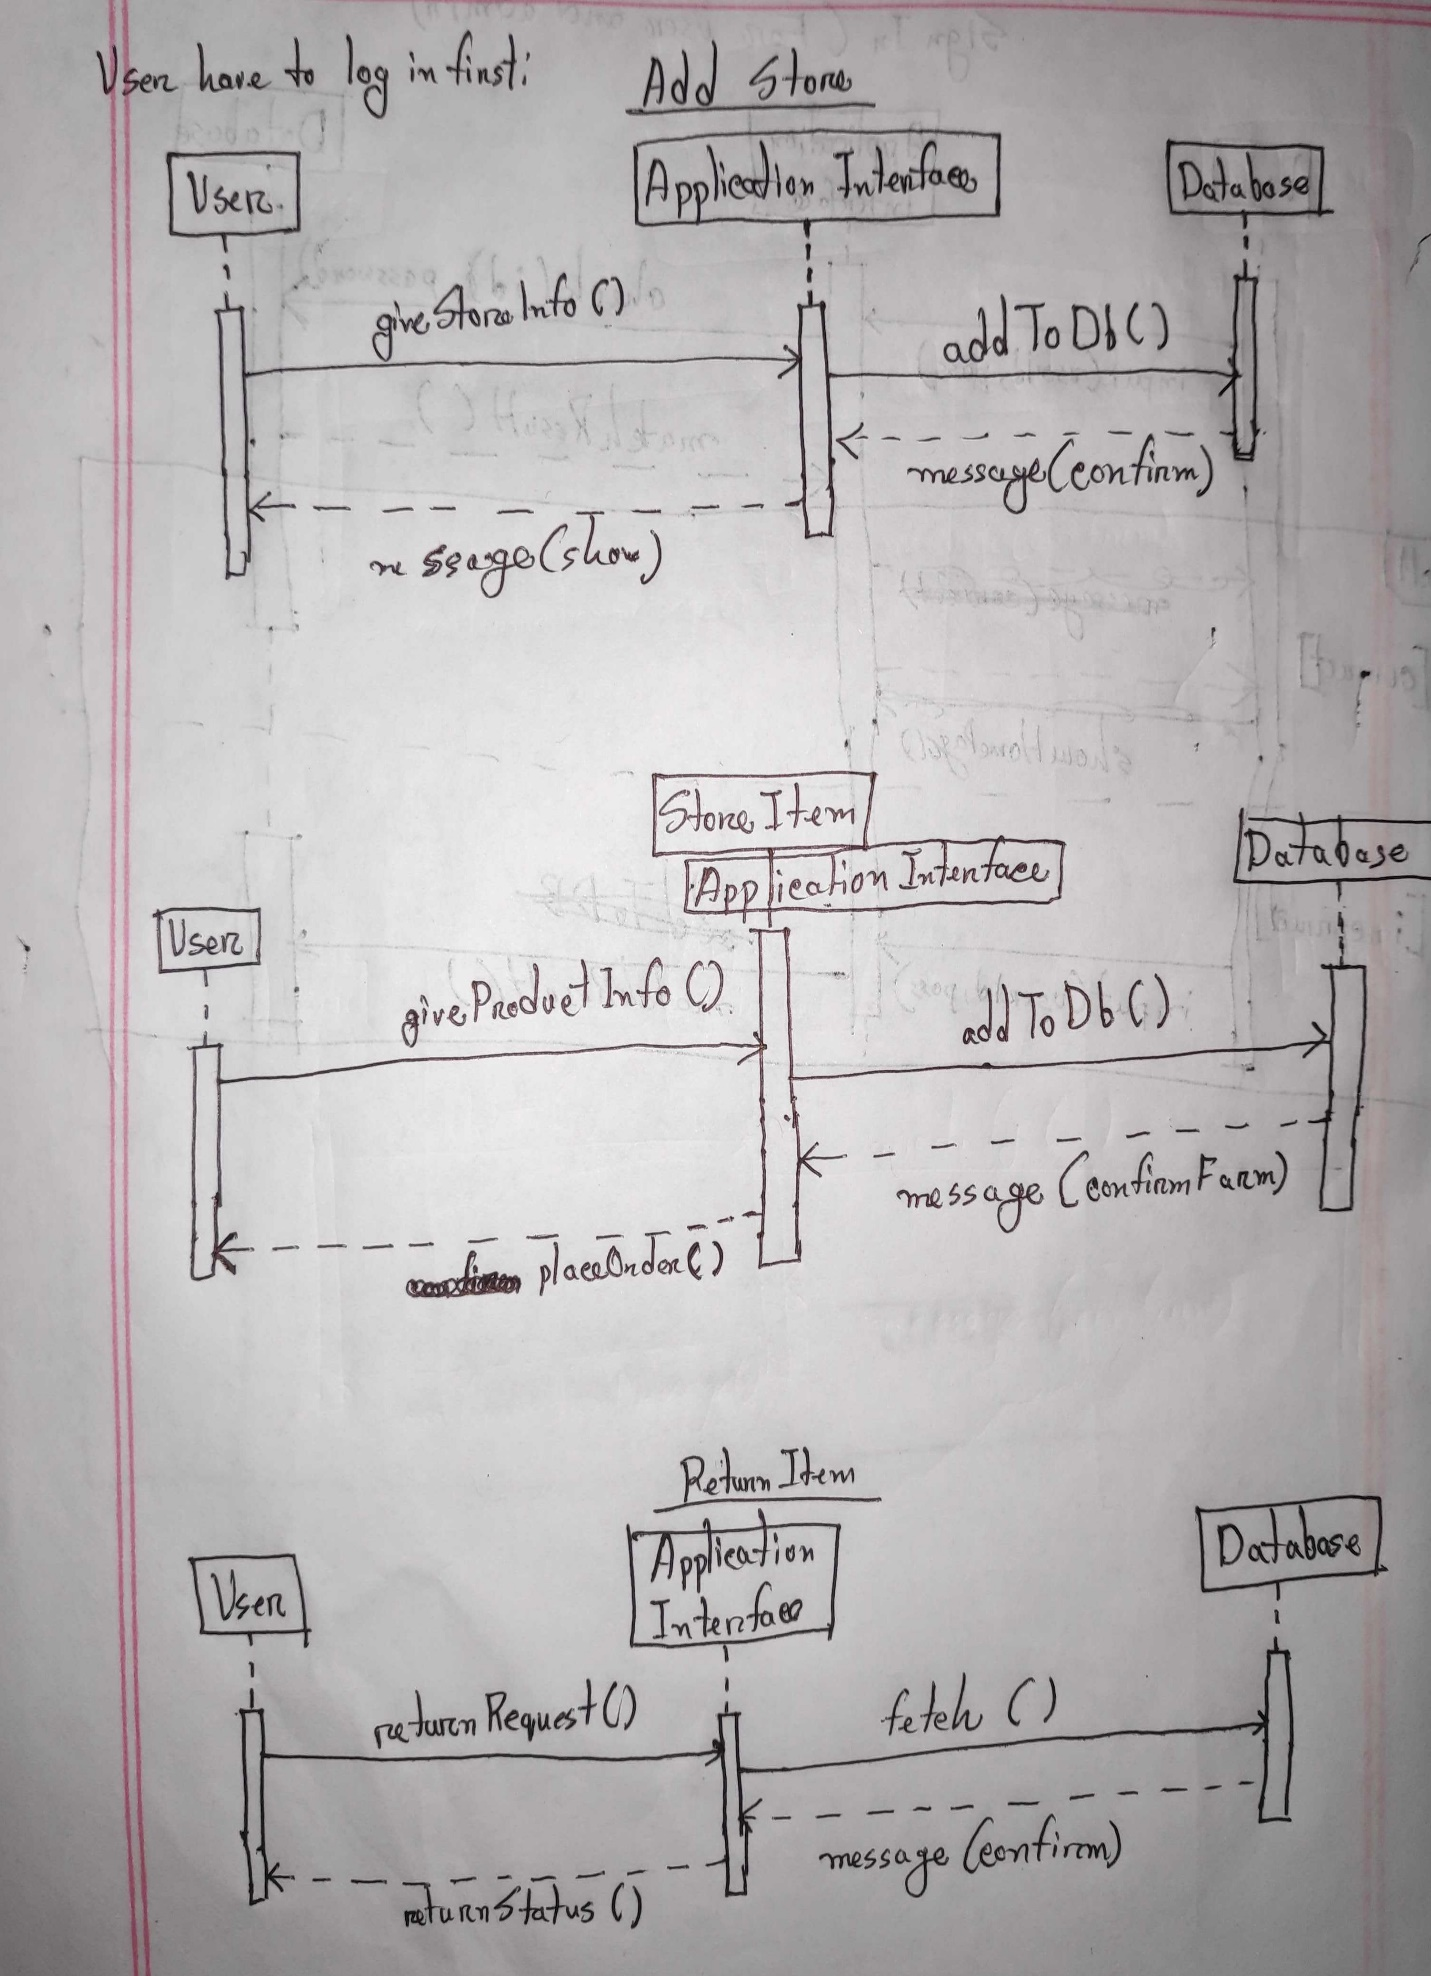 User have to log in first:
Add Store
User.
Application Interface
Database
giveStoreInfo()
addToDb()
message(confirm)
message(show)
Store Item
Application Interface
Database
User
giveProductInfo()
addToDb()
message (confirmFarm)
placeOrder()
Return Item
User
Application
Interface
Database
returnRequest()
fetch ()
message (confirm)
returnStatus ()